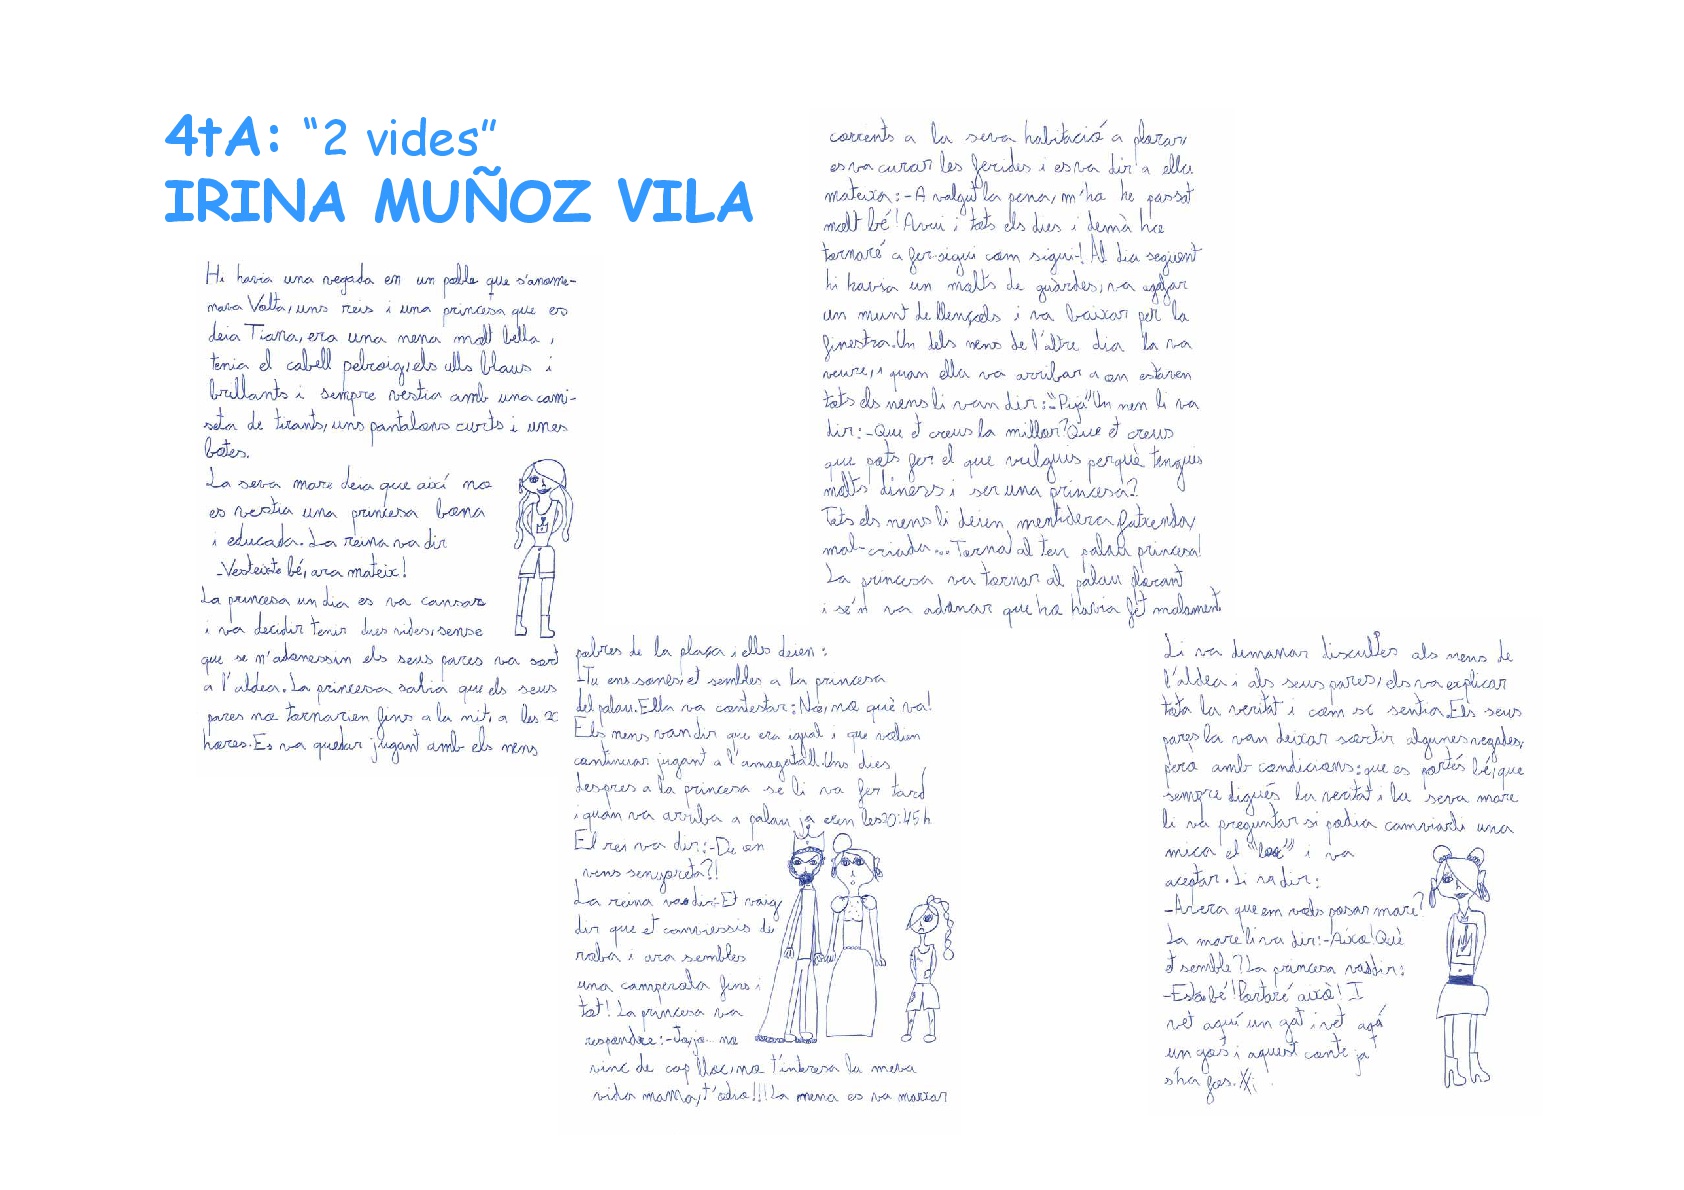 4tA: “2 vides”
IRINA MUÑOZ VILA
Hi havia una vegada en un poble que s'anome-
nava Volta, uns reis i una princesa que es
deia Tiana, era una nena molt bella,
tenia el cabell pelroig, els ulls blaus i
brillants i sempre vestia amb una cami-
seta de tirants, uns pantalons curts i unes
botes.
La seva mare deia que així no
es vestia una princesa bona
i educada. La reina va dir
-Vesteix-te bé, ara mateix!
La princesa un dia es va cansar
i va decidir tenir dues vides, sense
que se n'adonessin els seus pares va sort
a l'aldea. La princesa sabia que els seus
pares no tornarien fins a la nit, a les 20
hores. Es va quedar jugant amb els nens
pobres de la plaça i ells deien:
-Tu ens sones, et sembles a la princesa
del palau. Ella va contestar: No, no què va!
Els nens van dir que era igual i que volien
continuar jugant a l'amagatall. Uns dies
despres a la princesa se li va fer tard
i quan va arriba a palau ja eren les 20:45h
El rei va dir:-De on
vens senyoreta?!
La reina va dir:-Et vaig
dir que et canviessis de
roba i ara sembles
una camperola fins i
tot! La princesa va
respondre:-Jo, jo... no
vinc de cap lloc, no t'interesa la meva
vida mama, t'odio!!! La nena es va marxar
corrents a la seva habitació a plorar,
es va curar les ferides i es va dir a ella
mateixa:-A valgut la pena, m'ho he passat
molt bé! Avui i tots els dies i demà ho
tornaré a fer-sigui com sigui! Al dia següent
hi havia un molts de guàrdes, va agafar
un munt de llençols i va baixar per la
finestra. Un dels nens de l'altre dia la va
veure, i quan ella va arribar a on estaven
tots els nens li van dir:-"Pija" Un nen li va
dir:-Que et creus la millor? Que et creus
que pots fer el que vulguis perquè tengues
molts diners i ser una princesa?
Tots els nens li deien mentidera, fatxenda,
mal-criada... Torna al teu palau princesa!
La princesa va tornar al palau plorant
i se'n va adonar que ho havia fet malament
Li va demanar disculpes als nens de
l'aldea i als seus pares, els va explicar
tota la veritat i com se sentia. Els seus
pares la van deixar sortir algunes vegades,
però amb condicions: que es portés bé, que
sempre digués la veritat i la seva mare
li va preguntar si podia camviarli una
mica el "look" i va
aceptar. Li va dir:
-A vera que em vols posar mare?
La mare li va dir:-Aixo! Què
et sembla? La princesa va dir:
-Esta bé! Portaré això! I
vet aquí un gat i vet aqá
un gos i aquest conte ja
s'ha fos.